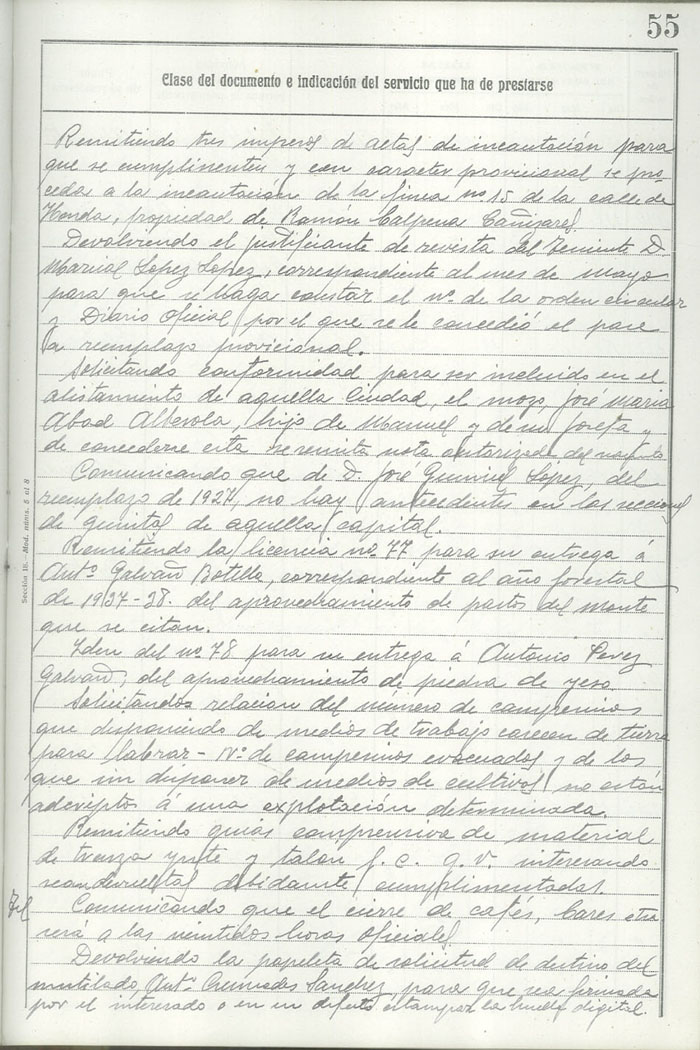 55
Clase del documento e indicación del servicio que ha de prestarse
Remitiendo tres impresos de actas de incautación para
que se cumplimenten y con caracter provicional se pro-
ceda a la incautación de la finca nº 15 de la calle de
Honda, propiedad de Ramón Calpena Cañizares.
Devolviendo el justificante de revista del Teniente D.
Marcial Lopez Lopez, correspondiente al mes de Mayo
para que se haga constar el nº de la orden circular
y Diario Oficial por el que se le concedió el pase
a reemplazo provicional.
Solicitando conformidad para ser incluido en el
alistamiento de aquella Ciudad, el mozo, José Maria
Abad Alberola, hijo de Manuel y de Mª Josefa y
de concederse esta se remita nota autorizada del
Comunicando que de D. José López, del
reemplazo de 1927, no hay antecedentes en las seccions
de quintas de aquella capital.
Remitiendo la licencia nº 77 para su entrega á
Antº Galvañ Botella, correspondiente al año forestal
de 1937-38. del aprovechamiento de pastos del monte
que se citan.
Iden del nº 78 para su entrega á Antonio Perez
Galvañ, del aprovechamiento de piedra de yeso.
Solicitandos relacion del número de campesinos
que disponiendo de medios de trabajo carecen de tierra
para labrar - Nº de campesinos evacuados y de los
que sin disponer de medios de cultivos no están
adcriptos á una explotación determinada.
Remitiendo guias comprensiva de material
de trenza yute y talon f. c. g. v. interesando
sean devueltas debidamte cumplimentadas.
Comunicando que el cierre de cafés, bares etra
será a las veintidos horas oficiales.
Devolviendo la papeleta de solicitud de destino del
mutilado, Antº Cremades Sanchez para que sea firmada
por el interesado o en su defecto estampar la huella digital.
Sección 18.-Mod. núms. 5 al 8